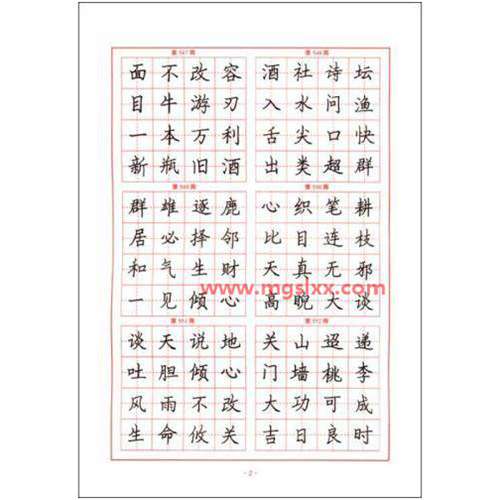 面不改容
目牛游刃
一本万利
新瓶旧酒
酒社诗坛
入水问渔
舌尖口快
出类超群
群雄逐鹿
居必择邻
和气生财
一见倾心
心织笔耕
比目连枝
天真无邪
高睨大谈
www.mgslxx.com
谈天说地
吐胆倾心
风雨不改
生命攸关
关山迢递
门墙桃李
大功可成
吉日良时
- 2 -